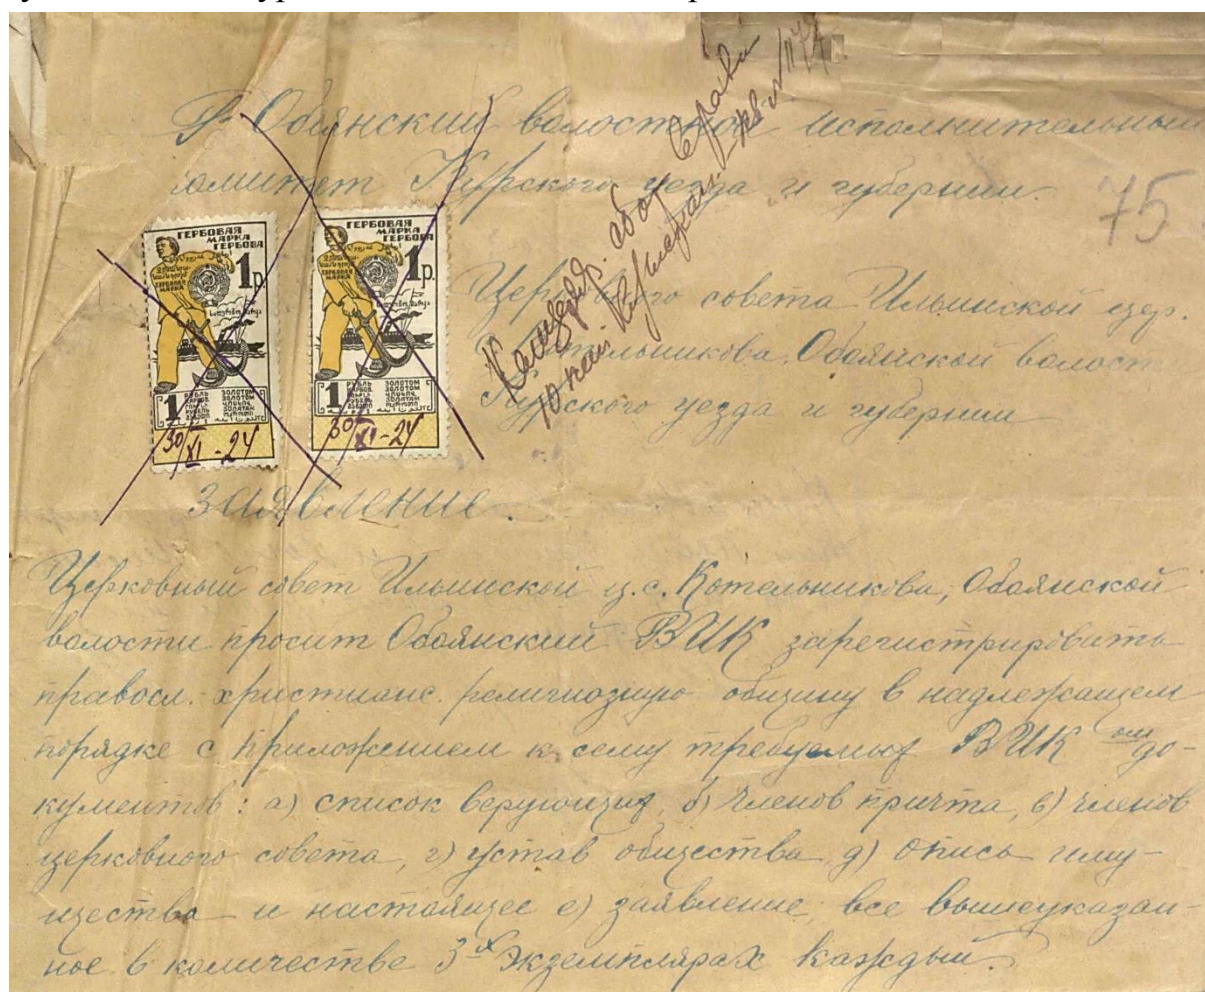 В Обоянский волостной исполнительный
комитет Курского уезда и губернии.
75
Церковного совета Ильинской цер.
Котельникова, Обоянской волост
Курского уезда и губернии
Канцеляр. сбор
10 коп.
ГЕРБОВАЯ
МАРКА
ГЕРБОВА
1р.
1
РУБЛЬ
ЗОЛОТОМ
30/XI-24
ГЕРБОВАЯ
МАРКА
ГЕРБОВА
1р.
1
РУБЛЬ
ЗОЛОТОМ
30/XI-24
заявление.
Церковный совет Ильинской ц. с. Котельникова, Обоянской
волости просит Обоянский ВИК зарегистрировать
правосл. христианс. религиозную общину в надлежащем
порядке с приложением к сему требуемых ВИК ом до-
кументов: а) список верующих, б) членов причта, в) членов
церковного совета, г) устав общества д) опись иму-
щества и настоящее е) заявление, все вышеуказан-
ное в количестве 3х экземплярах каждый.